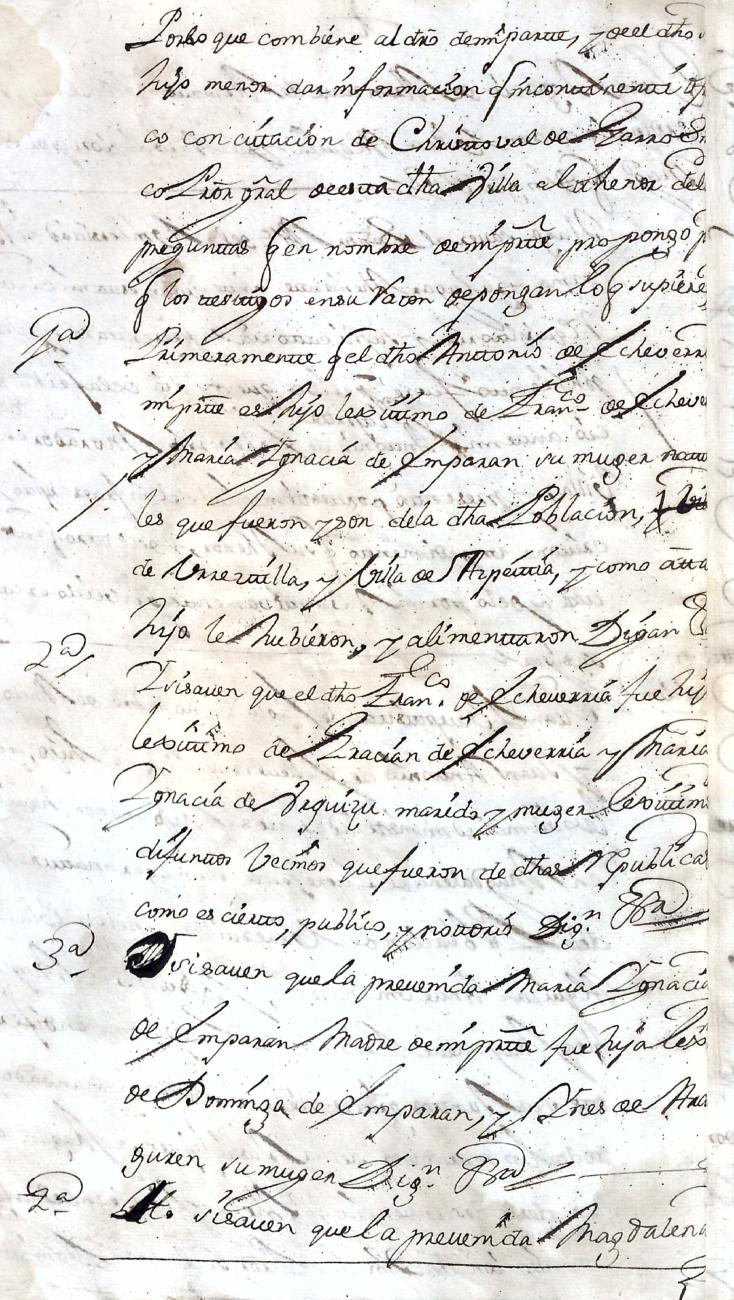 Porlo que combiene al dro demiparte, y de el dho
hijo menor dar informacion q incontinenti
co con citacion de Christoval de Garro
co Pror gral de esta dha Villa al thenor del
preguntas q en nombre de mi prtte propongo
q los testigos en su razon depongan lo q supiere
1ª Primeramente q el dho Anttonio de Echeverr
mi prtte es hijo lexitimo de Franco de Echeve
y Maria Ignacia de Emparan su muger natu
les que fueron y son dela dha Poblacion,
de Urrestilla, y Villa de Azpeitia, y como a tta
hijo le hubieron, y alimenttaron Digan
2ª Ytt si saven que el dho Franco de Echeverria fue hij
lexitimo de Gracian de Echeverria y Maria
Ignacia de Urquizu marido y muger lexitim
difuntos Vecinos que fueron de dhas Republicas
como es cierto, publico, y nottorio Dign &ª
3ª Ytt si saven que la prevenida Maria Ignacia
de Emparan Madre de mi prtte fue hija lex
de Dominga de Emparan, y Ines de Ara
guren su muger Dign &ª
4ª Ytt si saven que la prevenida Magdalena